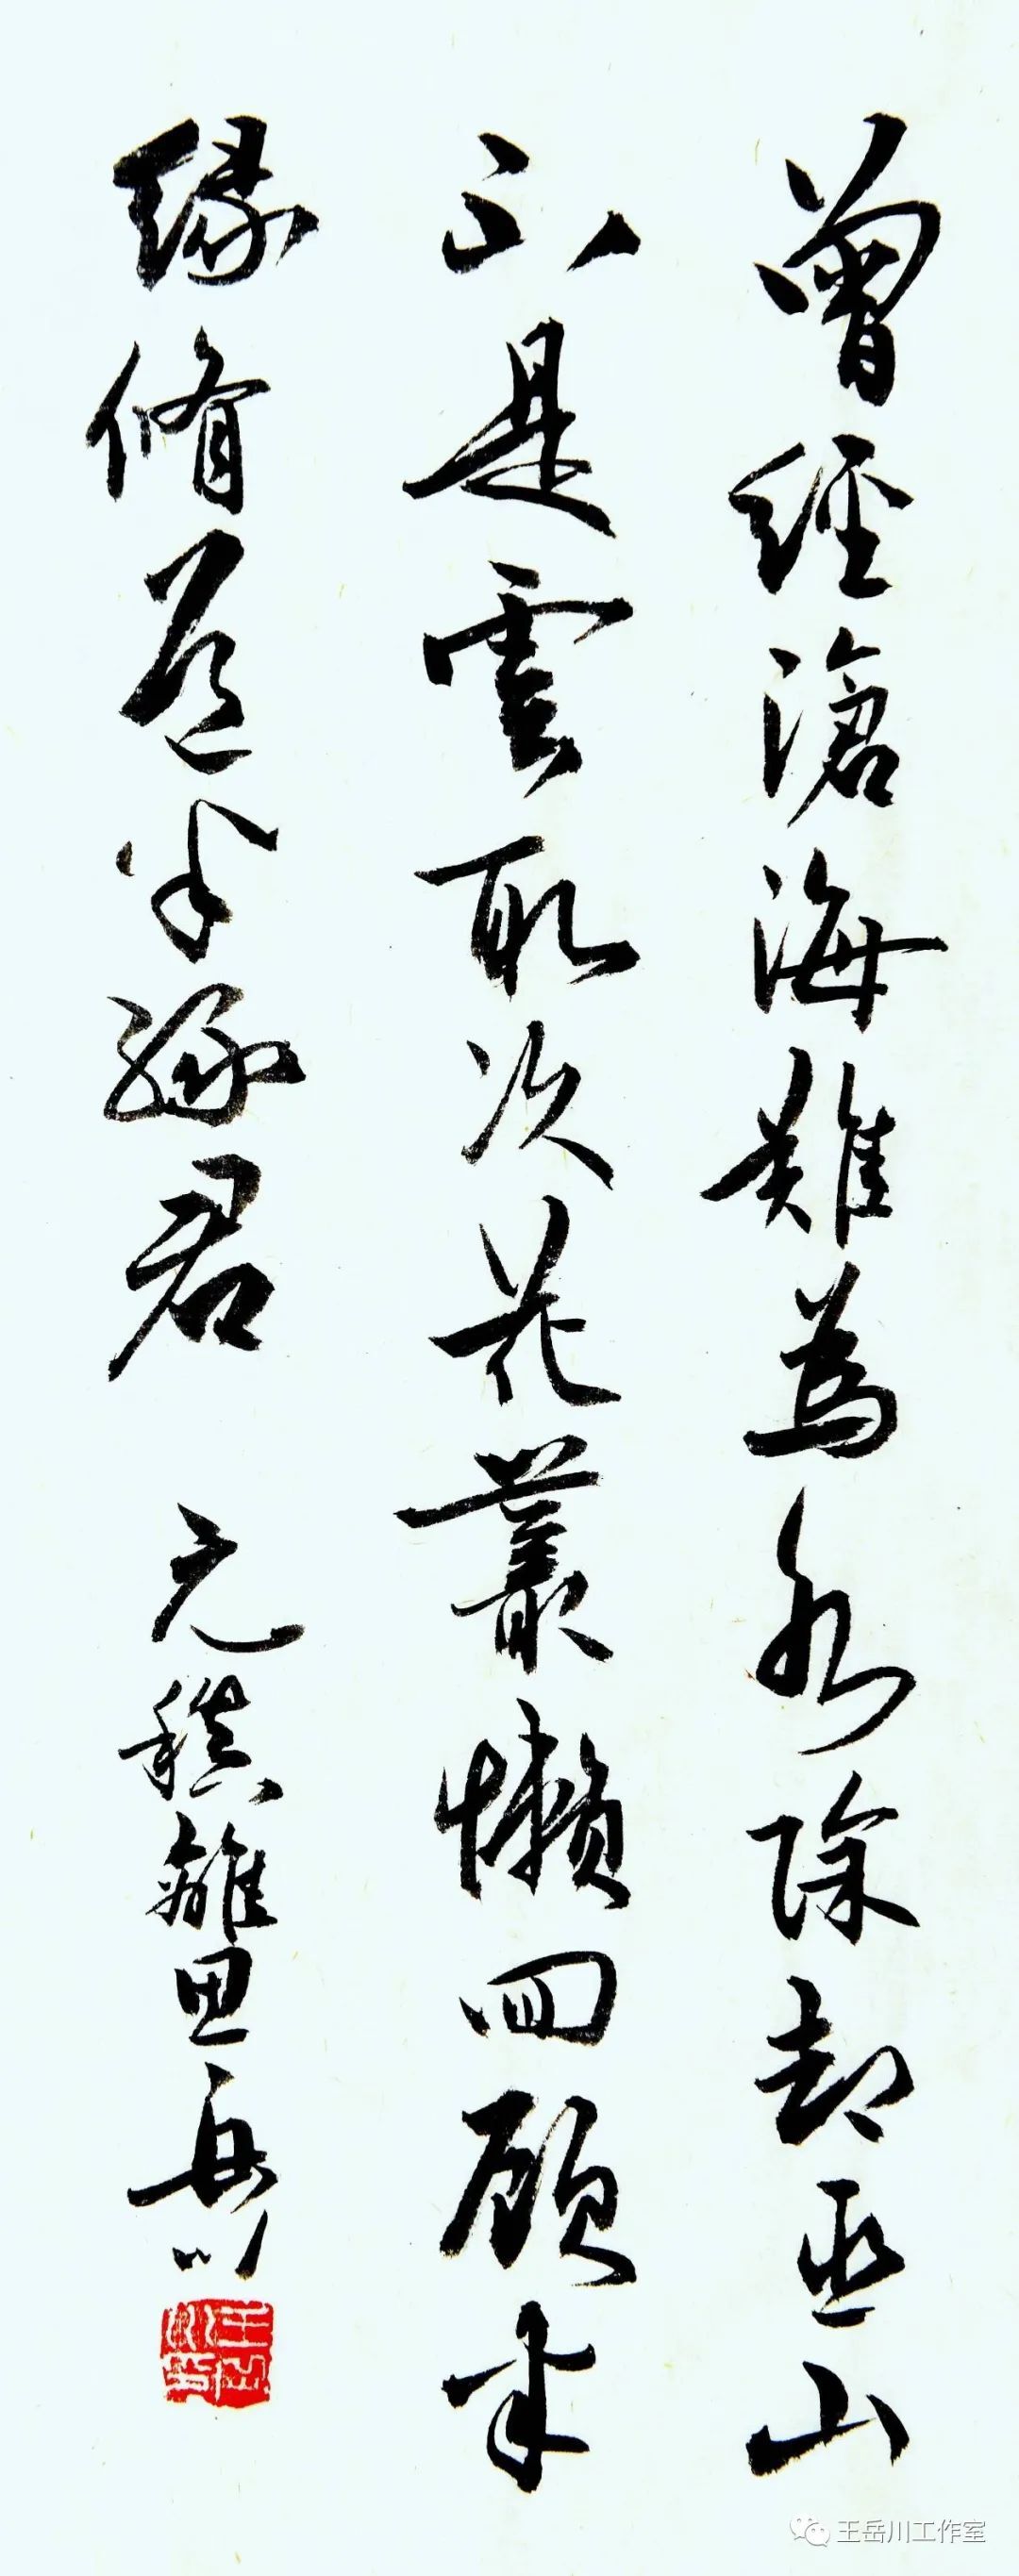 曾經滄海難為水除却巫山
不是雲取次花叢懶回顧半
緣脩道半緣君 元稹離思 岳川
王岳川印
王岳川工作室